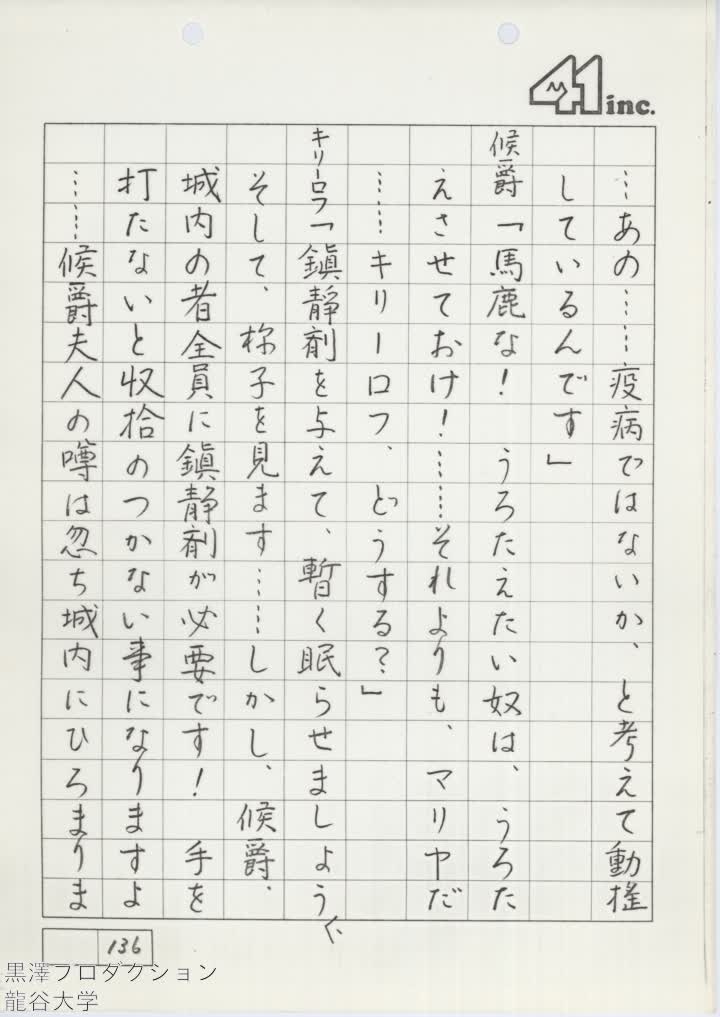 41 inc.
…あの……疫病ではないか、と考えて動揺
しているんです」
候爵「馬鹿な！　うろたえたい奴は、うろた
えさせておけ！……それよりも、マリヤだ
……キリーロフ、どうする？」
キリーロフ「鎮静剤を与えて、暫く眠らせましょう
そして、様子を見ます……しかし、候爵、
城内の者全員に鎮静剤が必要です！　手を
打たないと収拾のつかない事になりますよ
……候爵夫人の噂は忽ち城内にひろまりま
136
黒澤プロダクション
龍谷大学